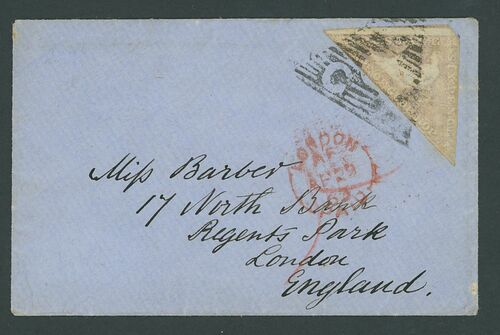 LONDON
Miss Barber
17 North Bank
Regents Park
London
England.